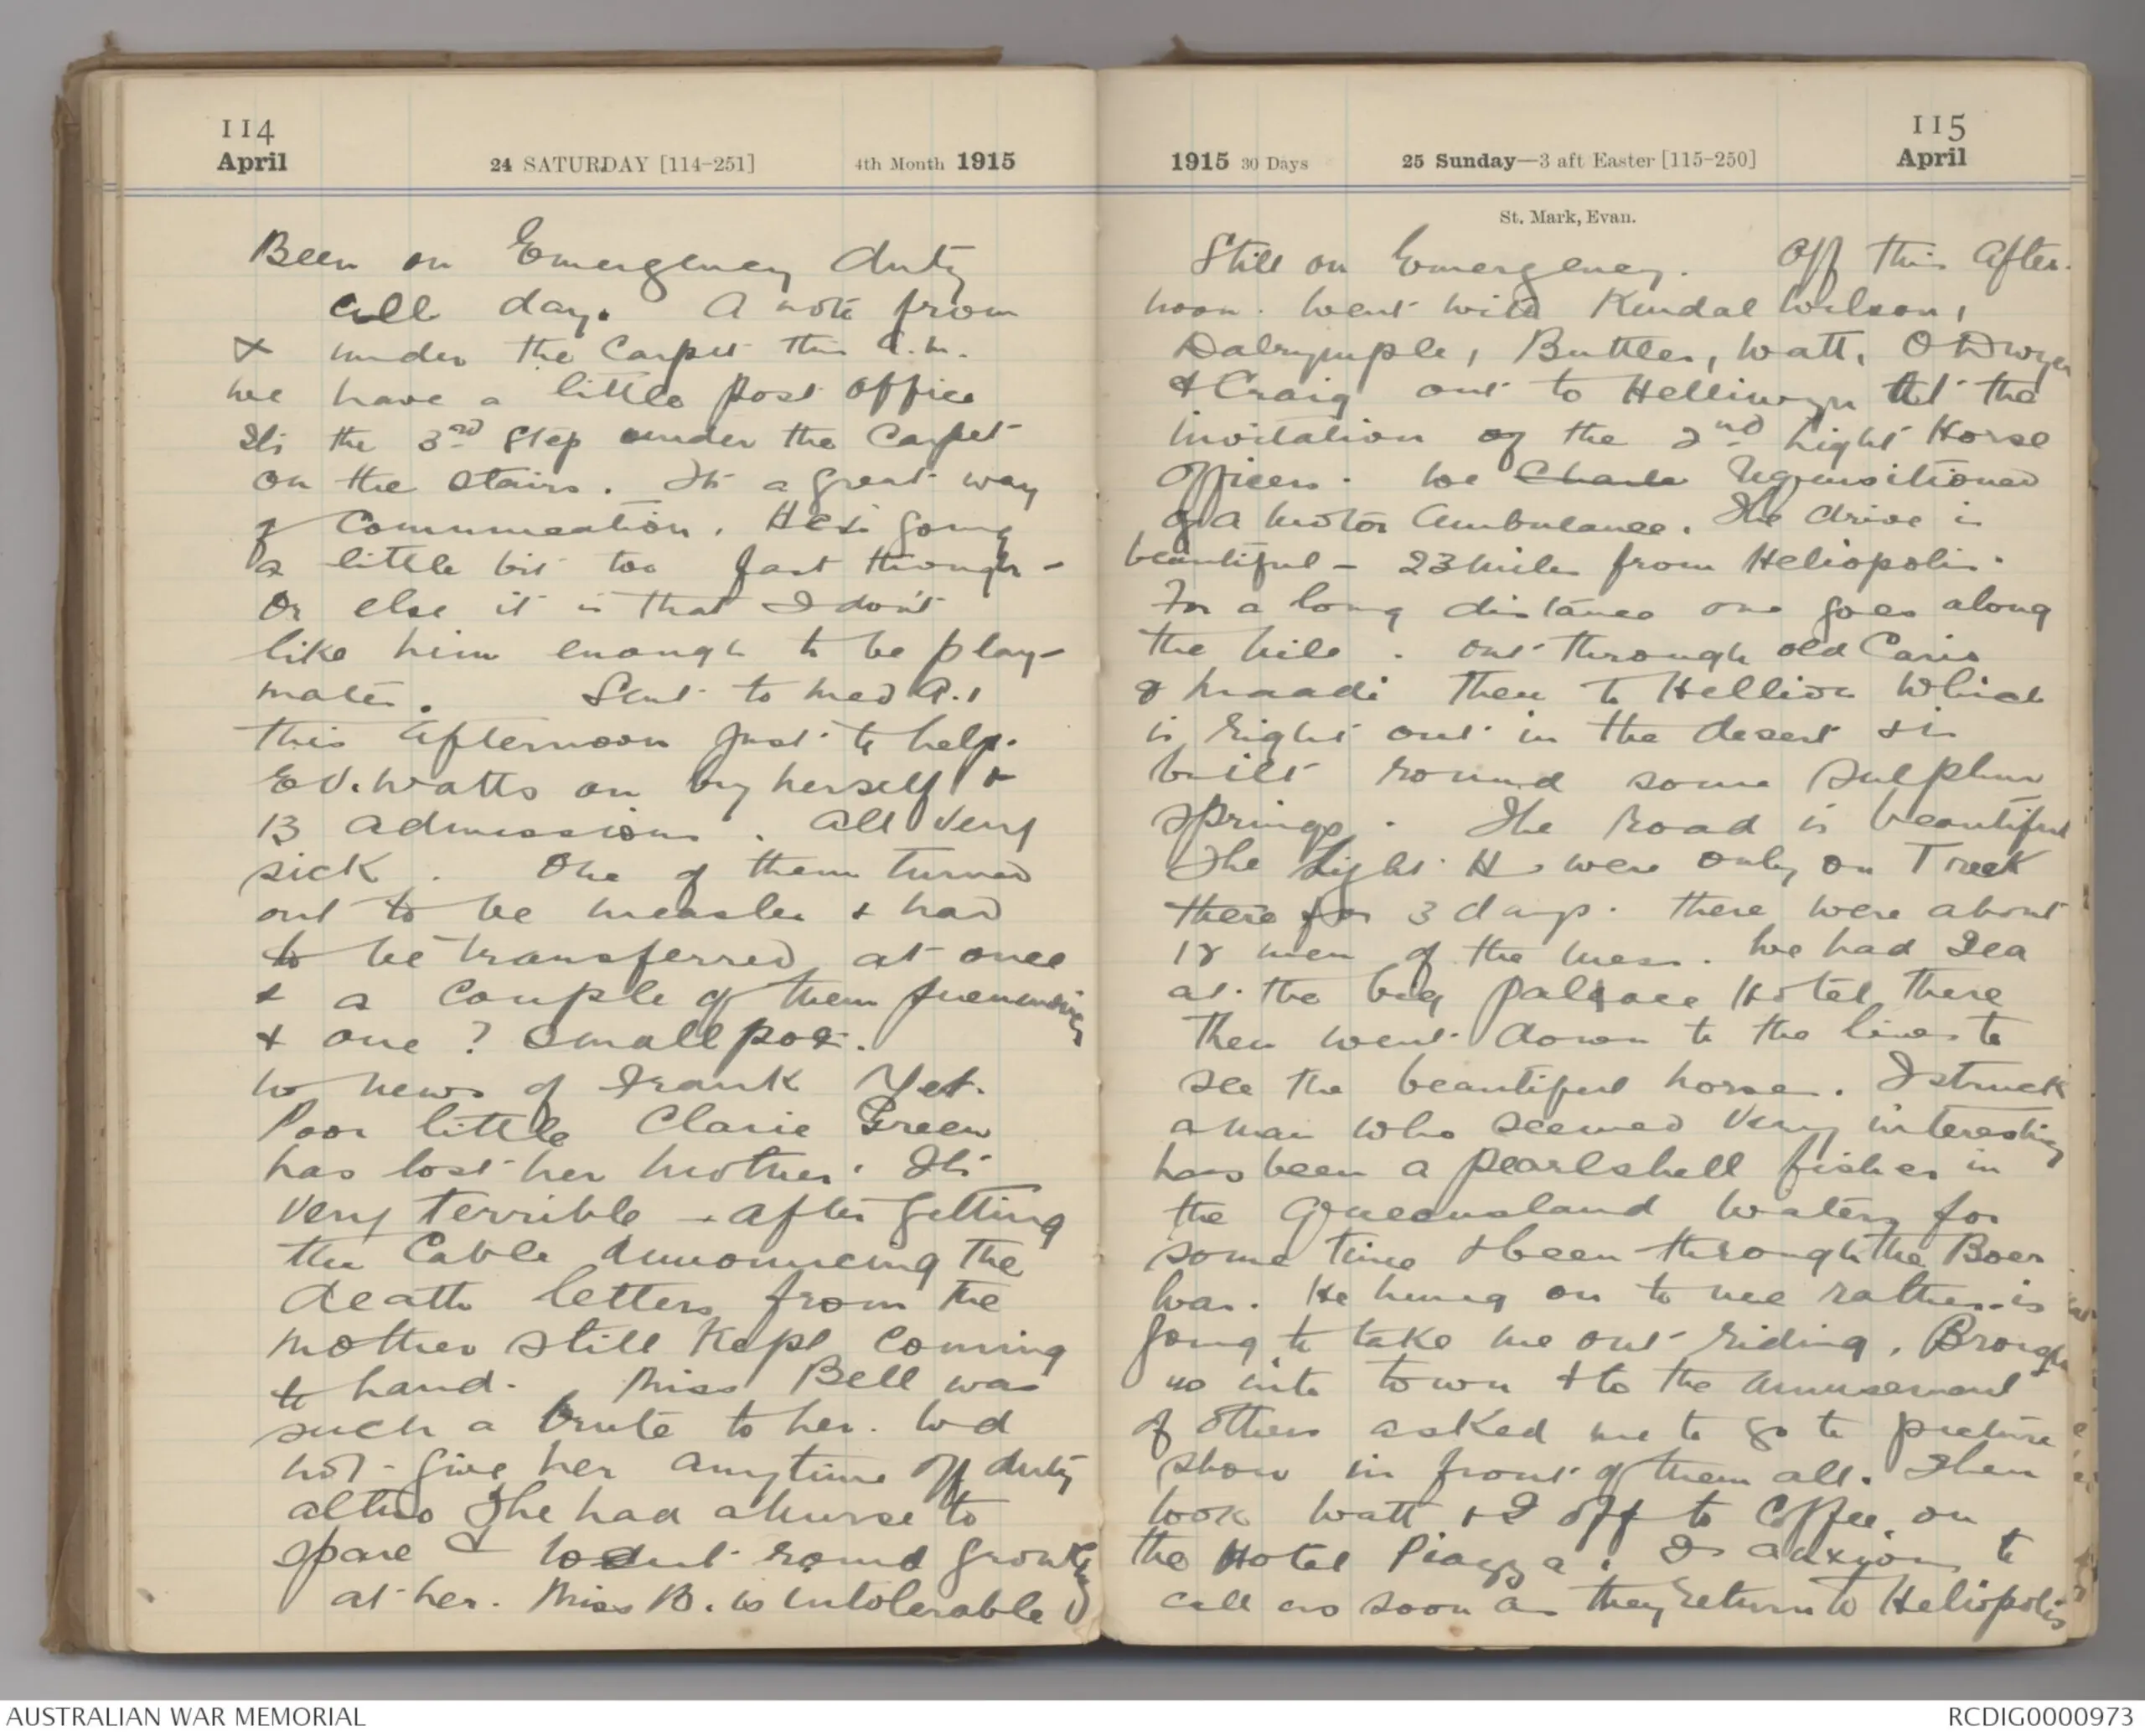 114
April
24 SATURDAY [114-251]
4th Month 1915
Been on Emergency duty
all day. A note from
x under the Carpet this a.m.
We have a little post office
Its the 3rd Step under the Carpet
on the stairs. Its a great way
of Communication. He's going
a little bit too fast though -
Or else it is that I don't
like him enough to be play-
mates. Sent to Med A.1
this afternoon just to help.
E V. Watts on by herself &
13 admissions. All very
sick. One of them turned
out to be measles & had
to be transferred at once
& a couple of them
& one ? Small pox.
No news of Frank Yet.
Poor little Clarie Green
has lost her Mother. Its
very terrible - after getting
the Cable Announcing the
death letters from the
Mother still Kept Coming
to hand. Miss Bell was
such a brute to her. Wd
not give her anytime off duty
altho She had a nurse to
spare & went round growling
at her. Miss B. is intolerable
1915 30 Days
25 Sunday—3 aft Easter [115-250]
115
April
St. Mark, Evan.
Still on Emergency. Off this After-
noon. Went with Kendal Wilson,
Dalrymple, Buttler, Watt, O'Dwyer
& Craig out to Helliwyn at the
invitation of the 2nd Light Horse
Officers. We requisitioned
a Motor Ambulance. The drive is
beautiful - 23 miles from Heliopolis.
For a long distance one goes along
the Nile. Out through old Cario
& Maadi then to Hellion Which
is right out in the desert & is
built round some Sulphur
Springs. The Road is beautiful
The Light H were only on Treck
there for 3 days. There were about
18 men of the mess. We had Tea
at the big Palace Hotel there
Then went down to the lines to
see the beautiful horses. I struck
a man who seemed very interesting
has been a pearlshell fisher in
the Queensland Waters for
some time & been through the Boer
War. He hung on to me rather - is
going to take me out riding. Brought
us into town & to the amusement
of others asked me to go to picture
show in front of them all. Then
took Watt & I off to Coffee on
the Hotel Piazza. Is anxious to
call as soon as they return to Heliopolis
AUSTRALIAN WAR MEMORIAL
RCDIG0000973